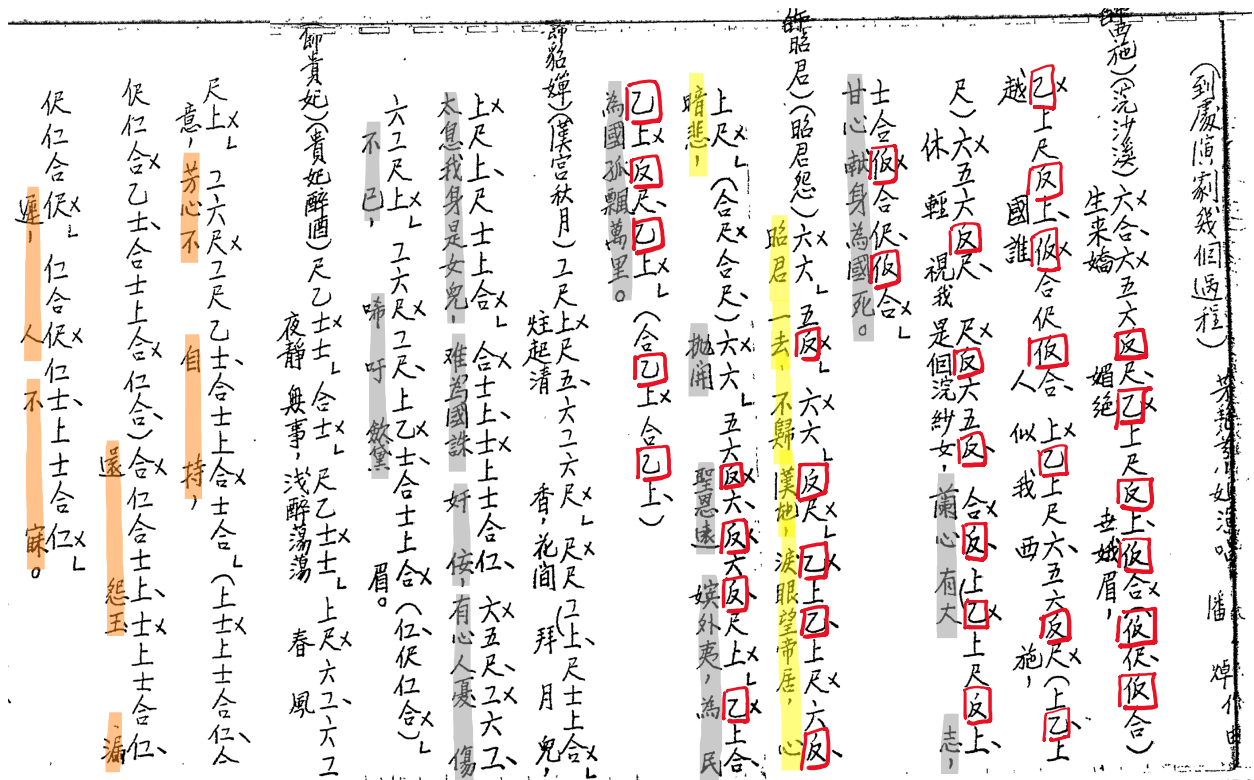 (到處演劇幾個過程) 芳艷芬小姐演唱 潘焯作曲
師西施)(浣沙溪)六合、六五六反尺、乙上尺反上、仮合(仮伬、仮合)
生来嬌 媚絕 世娥眉,
乙上尺反上、仮合伬仮合、上乙上尺六、五六反尺(上乙、上
越 國誰 人似我西 施,
尺)六五六反尺、尺反六五反、合反、(上乙上尺反上、
休輕視我是個浣紗女,蘭心有大 志,
士合仮合伬、仮合
甘心献身為國死。
師昭君)(昭君怨)六六五反六六反尺乙上乙上尺六反、
昭君一去,不歸漢地,淚眼望帝居,心
上尺(合尺合尺、)六六五六反六、反六反尺上乙上合
暗悲, 拋開 聖恩遠 嫔外夷,為民
乙上反尺、乙上(合乙上合乙上、)
為國孤飄萬里。
師貂嬋)(漢宮秋月)工尺上尺五、六工六尺尺尺(工上、尺士上合
炷起清 香,花间 拜月兒,
上尺上、尺士上合合士上、士上士合仁、六五尺、工六工、
太息我身是女兒,难為國誅奸佞,有心人憂傷
六工尺上工六尺工尺、上乙士合士上合(仁、伬仁合)
不已, 唏吁 歛黛 眉。
師貴妃)(貴妃醉酒)尺乙士士合士尺乙士士上尺六工、六工
夜靜無事,浅醉荡荡 春風
尺上工六尺工尺乙士、合士上合士合(上士上士合仁、合
意,芳心不 自 持,
伬仁合乙士、合士上合仁合、)合仁合士上、士上士合仁、
還 怨玉 漏
伬仁合伬仁合伬仁士、上士合仁
遲, 人 不 寐。